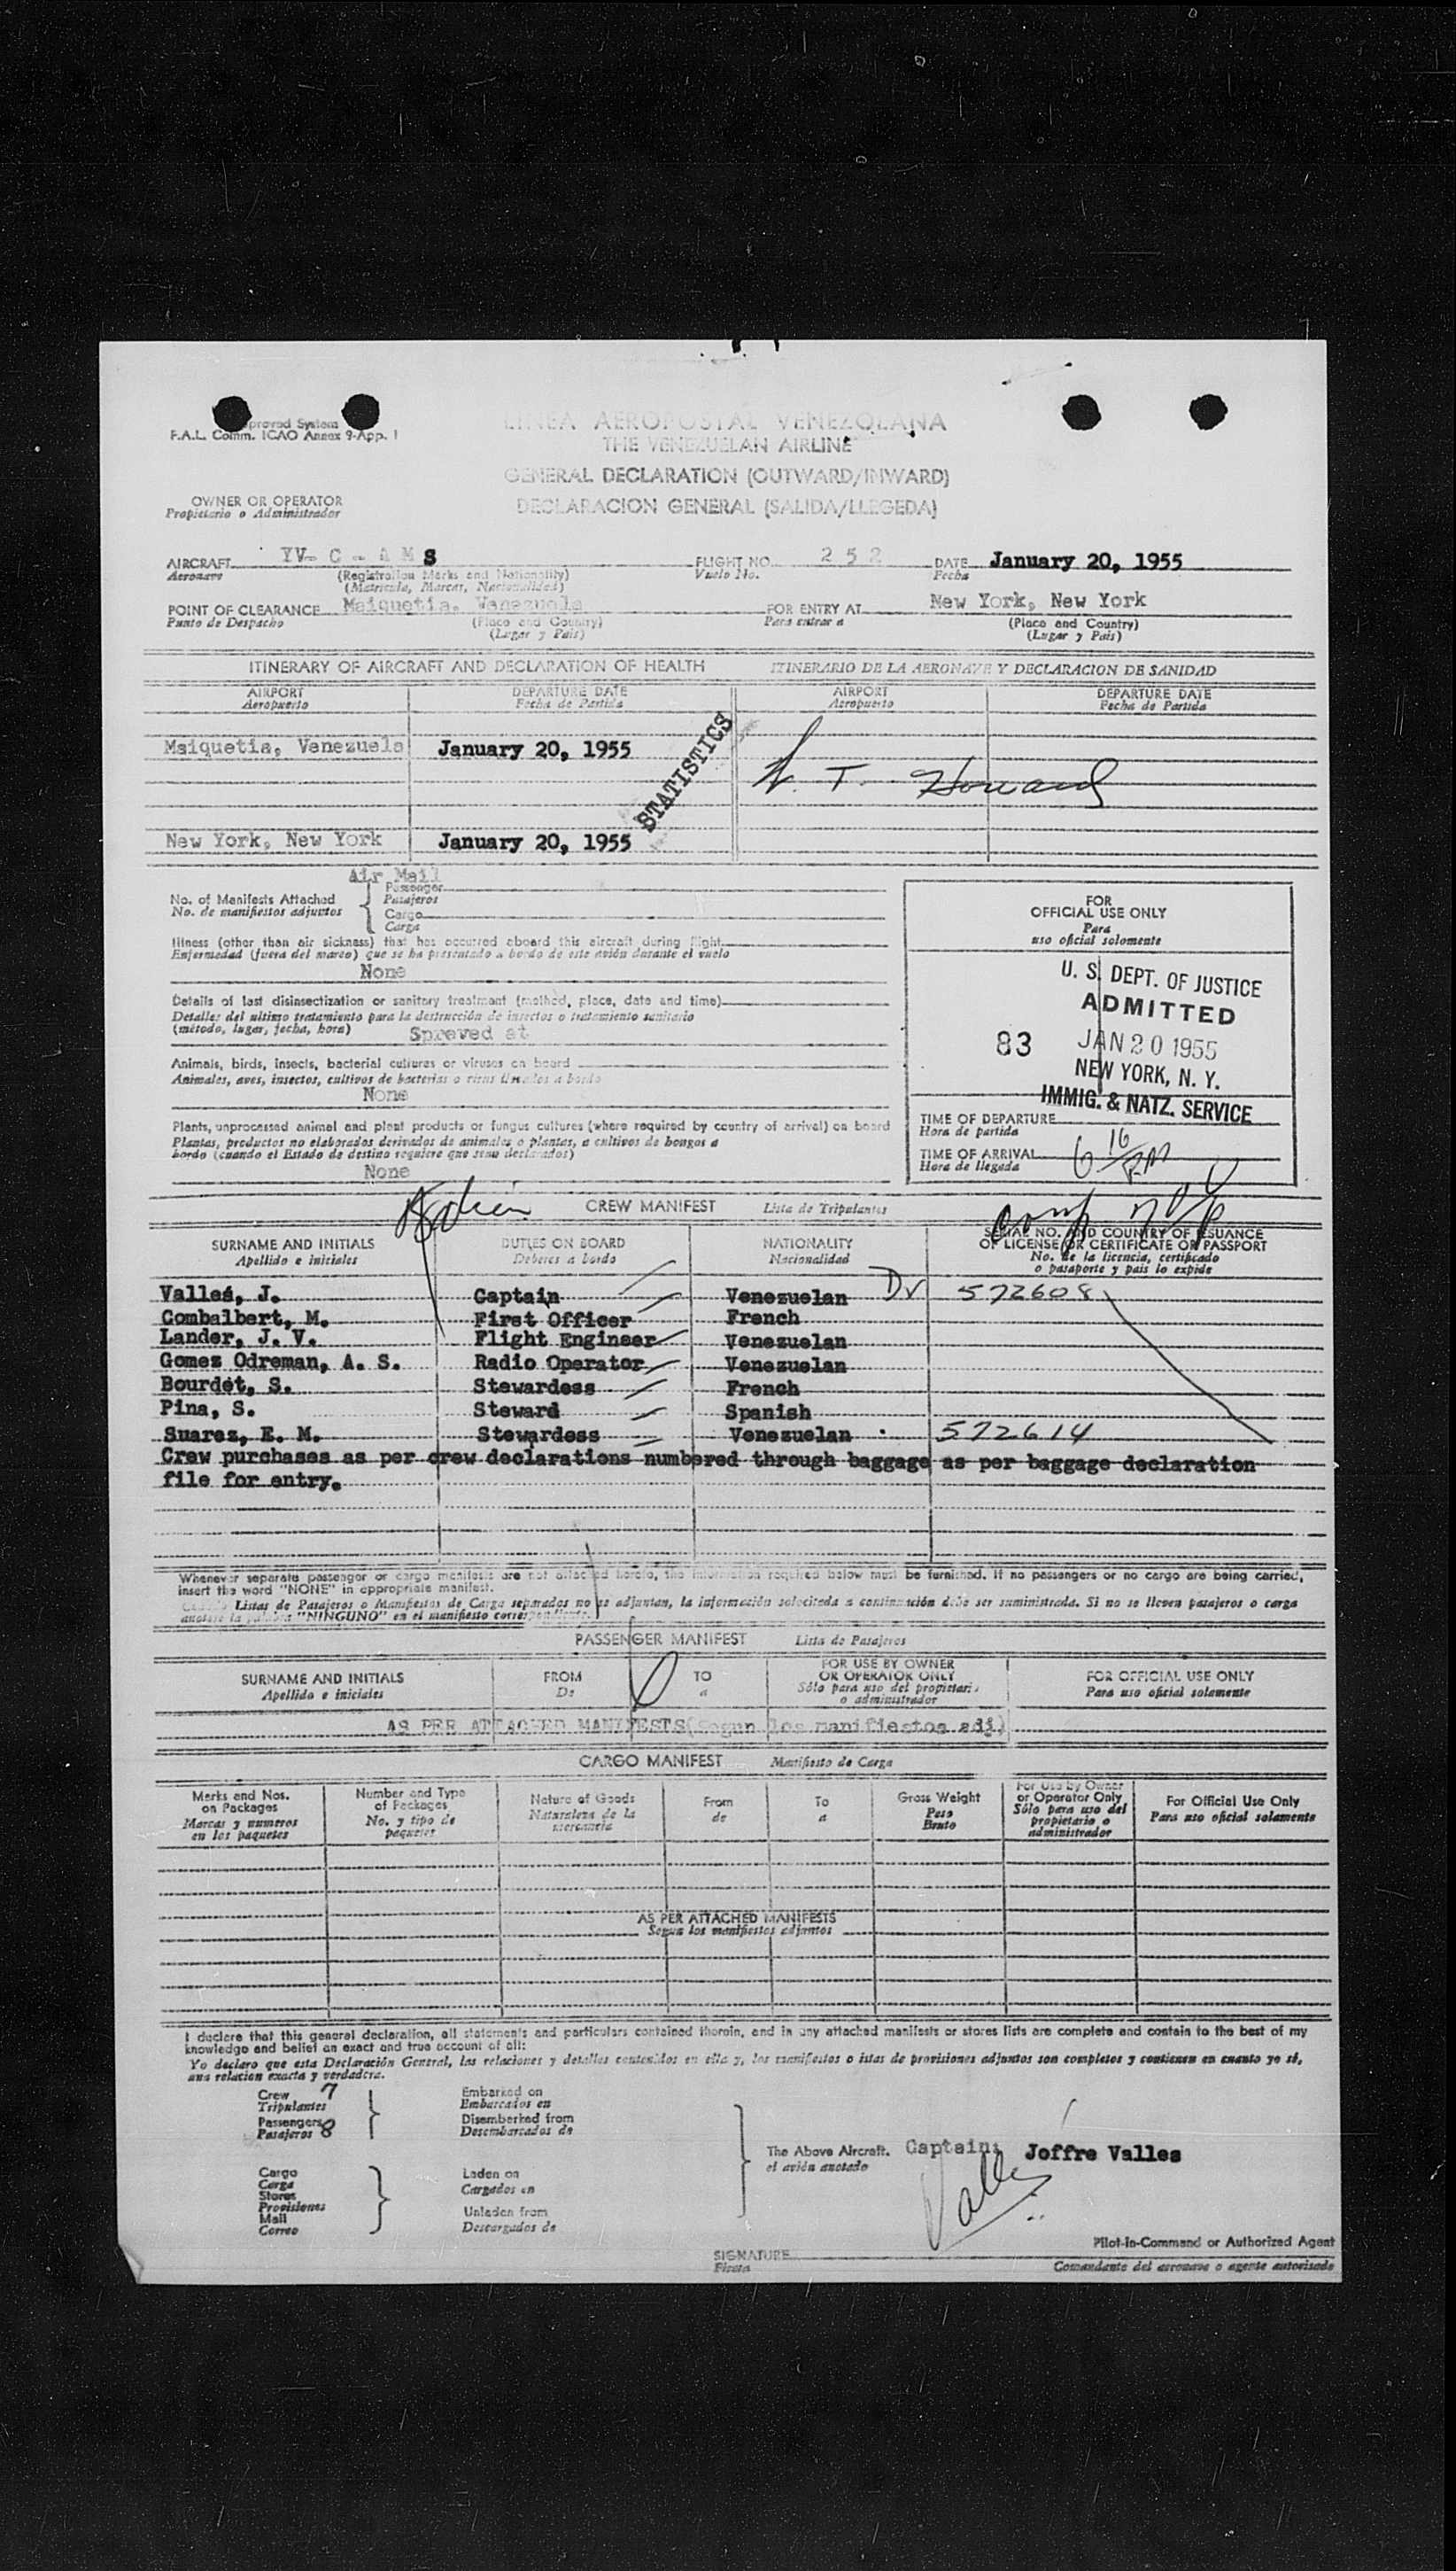 proved System
F.A.L. Comm. ICAO Annex 9-App. 1
LINEA AEROPOSTAL VENEZOLANA
THE VENEZUELAN AIRLINE
GENERAL DECLARATION (OUTWARD/INWARD)
DECLARACION GENERAL (SALIDA/LLEGEDA)
OWNER OR OPERATOR
Propietario o Administrador
AIRCRAFT YV- C - A M S FLIGHT NO. 2 5 2 DATE January 20, 1955
Aeronave (Registration Marks and Nationality) Vuelo No. Fecha
(Matricula, Marcas, Nacionalidad)
POINT OF CLEARANCE Maiquetia, Venezuela FOR ENTRY AT New York, New York
Punto de Despacho (Place and Country) Para entrar a (Place and Country)
(Lugar y Pais) (Lugar y Pais)
ITINERARY OF AIRCRAFT AND DECLARATION OF HEALTH ITINERARIO DE LA AERONAVE Y DECLARACION DE SANIDAD
AIRPORT DEPARTURE DATE AIRPORT DEPARTURE DATE
Aeropuerto Fecha de Partida Aeropuerto Fecha de Partida
Maiquetia, Venezuela January 20, 1955
STATISTICS
T. Howard
New York, New York January 20, 1955
Air Mail
No. of Manifests Attached Passenger
No. de manifiestos adjuntos Pasajeros
Cargo
Carga
Illness (other than air sickness) that has occurred aboard this aircraft during flight
Enfermedad (fuera del mareo) que se ha presentado a bordo de este avión durante el vuelo
None
Details of last disinsectization or sanitary treatment (method, place, date and time)
Detalles del ultimo tratamiento para la destrucción de insectos o tratamiento sanitario
(método, lugar, fecha, hora) Sprayed at
Animals, birds, insects, bacterial cultures or viruses on board
Animales, aves, insectos, cultivos de bacterias o virus llevados a bordo
None
Plants, unprocessed animal and plant products or fungus cultures (where required by country of arrival) on board
Plantas, productos no elaborados derivados de animales o plantas, o cultivos de hongos a
bordo (cuando el Estado de destino requiere que sean declarados)
None
FOR
OFFICIAL USE ONLY
Para
uso oficial solomente
U. S. DEPT. OF JUSTICE
ADMITTED
83 JAN 20 1955
NEW YORK, N. Y.
IMMIG. & NATZ. SERVICE
TIME OF DEPARTURE
Hora de partida
TIME OF ARRIVAL 6 16 PM
Hora de llegada
CREW MANIFEST Lista de Tripulantes
SURNAME AND INITIALS DUTIES ON BOARD NATIONALITY SERIAL NO. AND COUNTRY OF ISSUANCE
OF LICENSE OR CERTIFICATE OR PASSPORT
Apellido e iniciales Deberes a bordo Nacionalidad No. de la licencia, certificado
o pasaporte y pais lo expide
Valles, J. Captain Venezuelan 572608
Combalbert, M. First Officer French
Lander, J. V. Flight Engineer Venezuelan
Gomez Odreman, A. S. Radio Operator Venezuelan
Bourdet, S. Stewardess French
Pina, S. Steward Spanish
Suarez, E. M. Stewardess Venezuelan 572614
Crew purchases as per crew declarations numbered through baggage as per baggage declaration
file for entry.
Whenever separate passenger or cargo manifests are not attached hereto, the information required below must be furnished. If no passengers or no cargo are being carried,
insert the word "NONE" in appropriate manifest.
Listas de Pasajeros o Manifiestos de Carga separados no se adjuntan, la información solocitada a continuación debe ser suministrada. Si no se lleven pasajeros o carga
anotese la palabra "NINGUNO" en el manifiesto correspondiente.
PASSENGER MANIFEST Lista de Pasajeros
SURNAME AND INITIALS FROM TO FOR USE BY OWNER
OR OPERATOR ONLY FOR OFFICIAL USE ONLY
Apellido e iniciales De a Sólo para uso del propietario
o administrador Para uso oficial solamente
AS PER ATTACHED MANIFESTS(segun los manifiestos adj)
CARGO MANIFEST Manifiesto de Carga
Marks and Nos.
on Packages
Marcas y numeros
en los paquetes
Number and Type
of Packages
No. y tipo de
paquetes
Nature of Goods
Naturaleza de la
mercancia
From
de
To
a
Gross Weight
Peso
Bruto
For Use by Owner
or Operator Only
Sólo para uso del
propietario o
administrador
For Official Use Only
Para uso oficial solamente
AS PER ATTACHED MANIFESTS
Segun los manifiestos adjuntos
I declare that this general declaration, all statements and particulars contained therein, and in any attached manifests or stores lists are complete and contain to the best of my
knowledge and belief an exact and true account of all:
Yo declaro que esta Declaración General, las relaciones y detalles contenidos en ella y, los manifestos o istas de provisiones adjuntos son completos y contienen en cuanto yo sé,
una relación exacta y verdadera.
Crew 7
Tripulantes
Passengers 8
Pasajeros
Embarked on
Embarcados en
Disembarked from
Desembarcados de
Cargo
Carga
Stores
Provisiones
Mail
Correo
Laden on
Cargados en
Unladen from
Descargados de
The Above Aircraft. Captain: Joffre Valles
el avión anotado
Valles
Pilot-in-Command or Authorized Agent
SIGNATURE
Firma Comandante del aeronave o agente autorizado